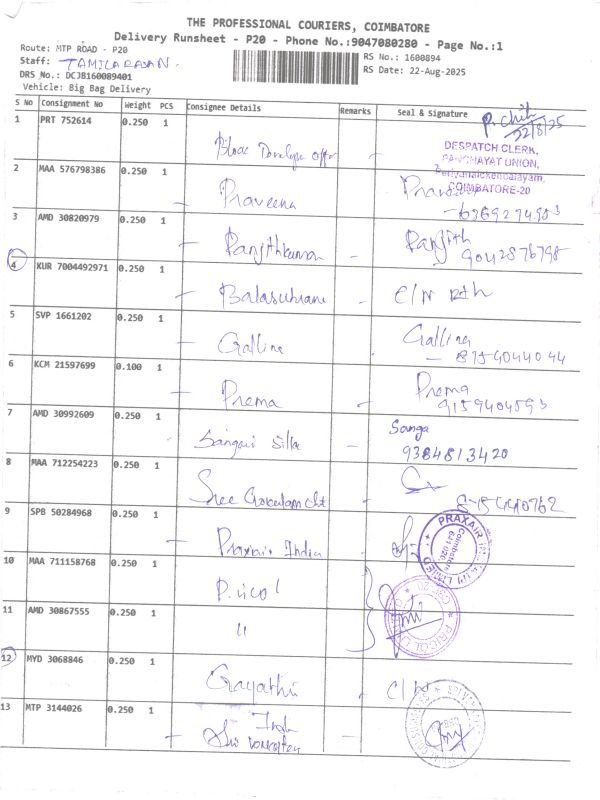 THE PROFESSIONAL COURIERS, COIMBATORE
Delivery Runsheet - P20 - Phone No.:9047080280 - Page No.:1
Route: MTP ROAD - P20
RS No.: 1600894
Staff: TAMILARASAN.
RS Date: 22-Aug-2025
DRS No.: DCJB160089401
Vehicle: Big Bag Delivery
S No Consignment No Weight PCS Consignee Details Remarks Seal & Signature
22/8/25
1 PRT 752614 0.250 1
DESPATCH CLERK,
PANCHAYAT UNION,
COIMBATORE-20
2 MAA 576798386 0.250 1 Praveena
3 AMD 30820979 0.250 1 Ranjithkumar - Ranjith
9042876798
4 KUR 7004492971 0.250 1 C/N
5 SVP 1661202 0.250 1 Gallina Gallina
6 KCM 21597699 0.100 1 Prema Prema
9159404593
7 AMD 30992609 0.250 1 Sanga
9384813420
8 MAA 712254223 0.250 1 Sree
9 SPB 50284968 0.250 1 Praxair India
PRAXAIR
Coimbatore
10 MAA 711158768 0.250 1 Pricol
PRICOL
11 AMD 30867555 0.250 1 "
12 MYD 3068846 0.250 1 Gayathri - C/N
13 MTP 3144026 0.250 1